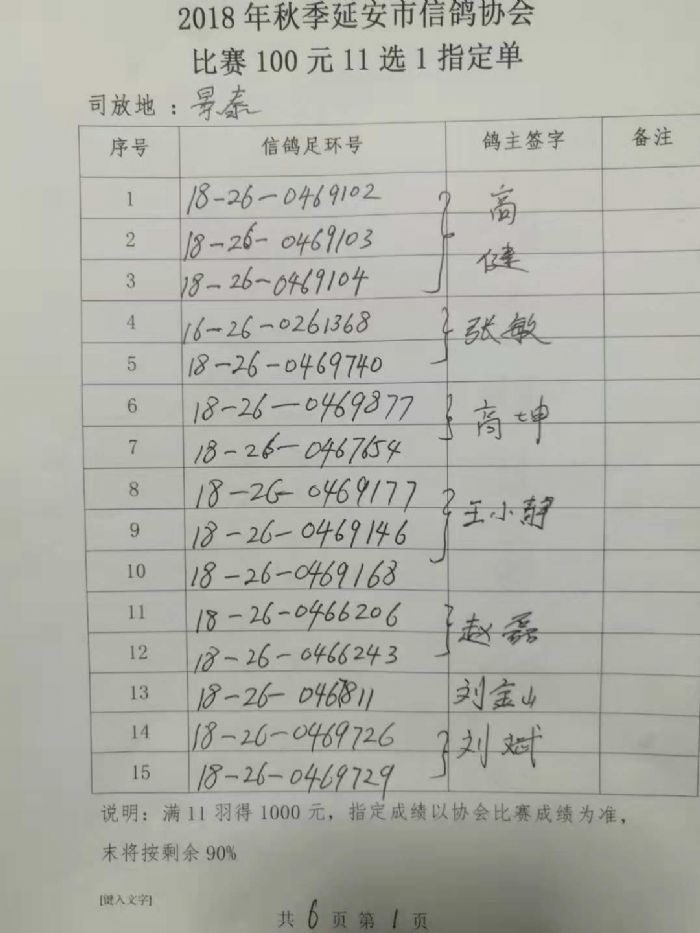 2018年秋季延安市信鸽协会
比赛100元11选1指定单
司放地：景泰
序号 信鸽足环号 鸽主签字 备注
1 18-26-0469102
2 18-26-0469103 高健
3 18-26-0469104
4 16-26-0261368 张敏
5 18-26-0469740
6 18-26-0469877 高坤
7 18-26-0467654
8 18-26-0469177
9 18-26-0469146 王小静
10 18-26-0469168
11 18-26-0466206 赵磊
12 18-26-0466243
13 18-26- 刘金山
14 18-26-0469726 刘斌
15 18-26-0469729
说明：满11羽得1000元，指定成绩以协会比赛成绩为准，
末将按剩余90%
[键入文字]
共6页第1页